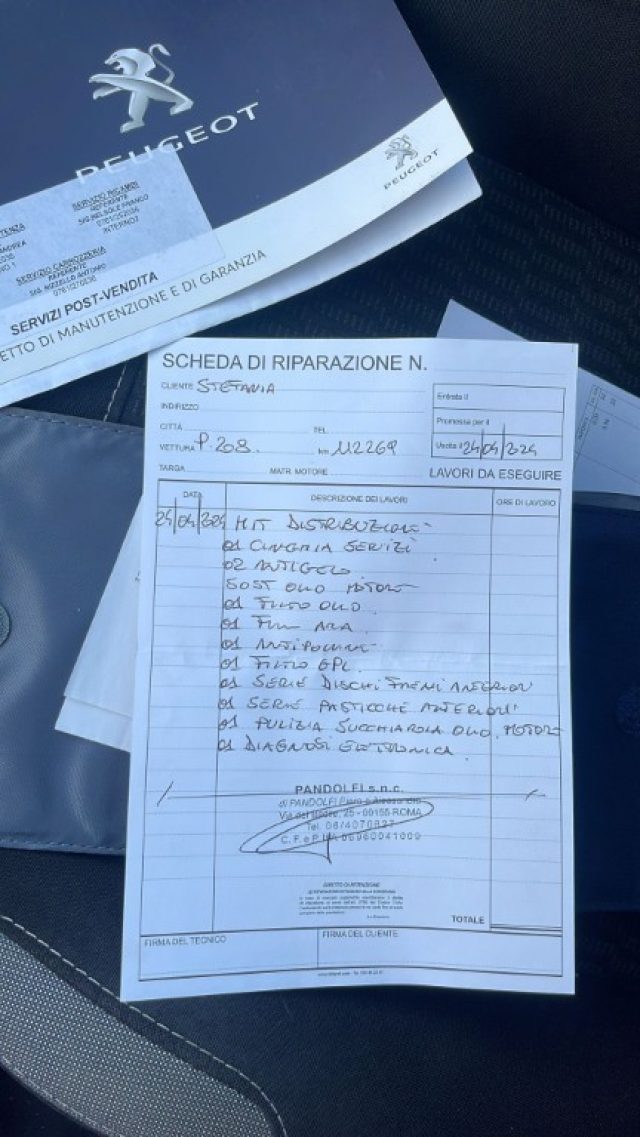 PEUGEOT
PEUGEOT
SERVIZIO RICAMBI
REFERENTE
INTERNO
SERVIZIO CARROZZERIA
REFERENTE
SERVIZI POST-VENDITA
ETTO DI MANUTENZIONE E DI GARANZIA
SCHEDA DI RIPARAZIONE N.
CLIENTE STEFANIA
INDIRIZZO
Entrata il
CITTÀ TEL.
Promessa per il
VETTURA P.208. km 112269
Uscita il 24/04/2024
TARGA MATR. MOTORE
LAVORI DA ESEGUIRE
DATA DESCRIZIONE DEI LAVORI ORE DI LAVORO
24/04/2024 KIT DISTRIBUZIONE
01 CINGHIA SERVIZI
02 ANTIGELO
SOST OLIO MOTORE
01 FILTRO OLIO
01 FILTRO ARIA
01 ANTIPOLLINE
01 FILTRO GPL
01 SERIE DISCHI FRENI ANTERIORI
01 SERIE PASTICCHE ANTERIORI
01 PULIZIA SUCCHIAROLA OLIO MOTORE
01 DIAGNOSI ELETTRONICA
PANDOLFI s.n.c.
di PANDOLFI Piero e Alessandro
ROMA
TOTALE
FIRMA DEL TECNICO
FIRMA DEL CLIENTE